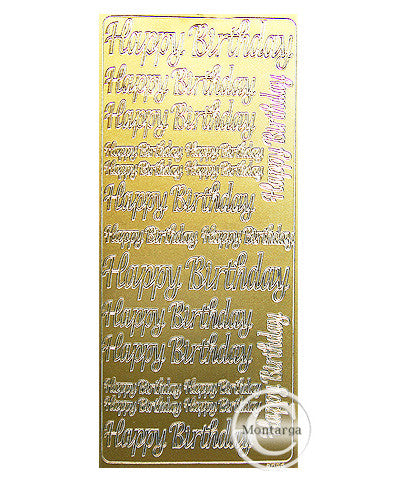 Happy Birthday
Happy Birthday
Happy Birthday
Happy Birthday
Happy Birthday Happy Birthday
Happy Birthday Happy Birthday
Happy Birthday
Happy Birthday Happy Birthday
Happy Birthday
Happy Birthday
Happy Birthday
Happy Birthday
Happy Birthday Happy Birthday
Happy Birthday Happy Birthday
Happy Birthday
© Montarga